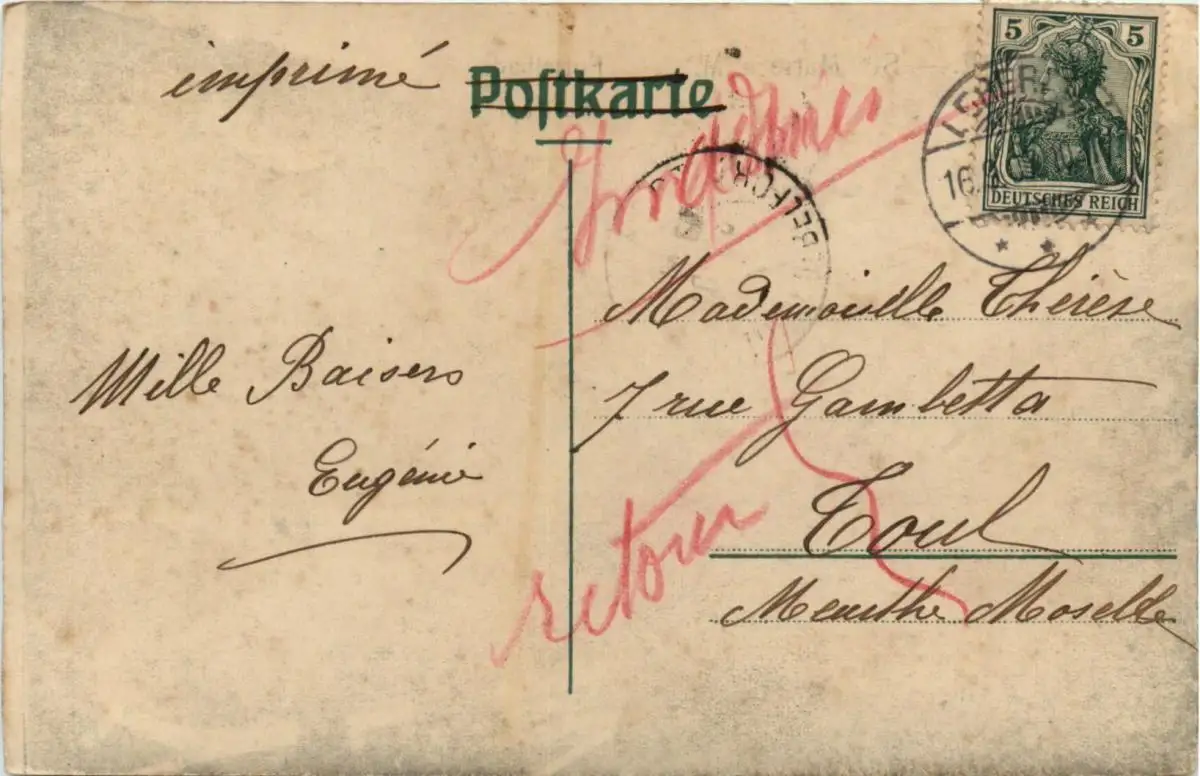 imprimé
Postkarte
5 5
DEUTSCHES REICH
16.
BELFORT
Mademoiselle Thérèse
7 rue Gambetta
Toul
Meurthe Moselle
Mille Baisers
Eugénie
retour